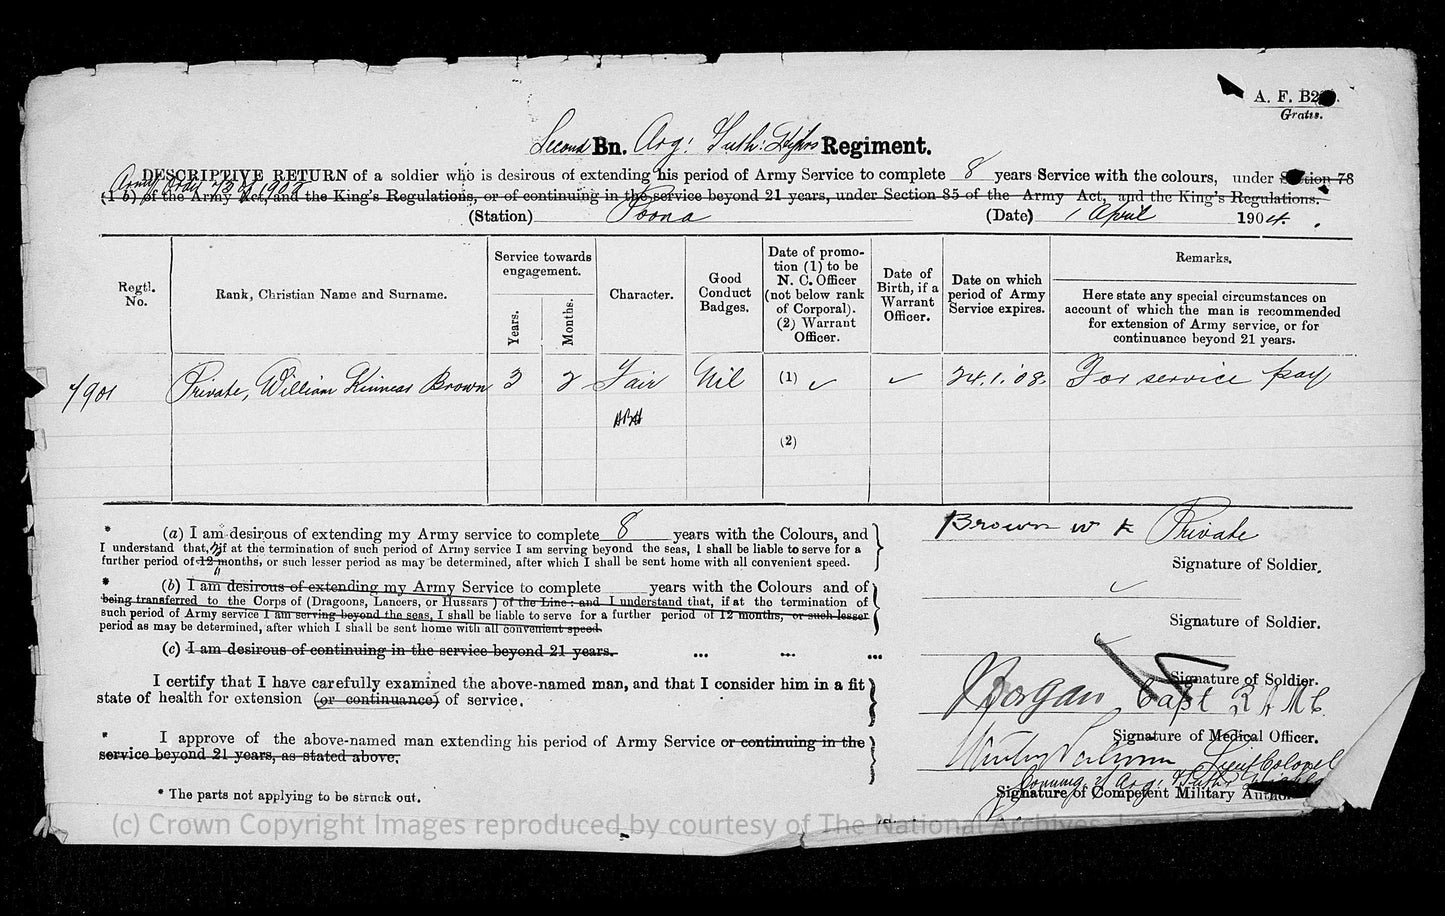 A. F. B2
Gratis.
Second Bn. Arg: Suth: Regiment.
DESCRIPTIVE RETURN of a soldier who is desirous of extending his period of Army Service to complete 8 years Service with the colours, under Section 78
Army Order 73 of 1902
(1 b) of the Army Act, and the King's Regulations, or of continuing in the service beyond 21 years, under Section 85 of the Army Act, and the King's Regulations.
(Station) Poona (Date) 1 April 1904.
Regtl. No.
Rank, Christian Name and Surname.
Service towards engagement.
Years.
Months.
Character.
Good Conduct Badges.
Date of promotion (1) to be N. C. Officer (not below rank of Corporal). (2) Warrant Officer.
Date of Birth, if a Warrant Officer.
Date on which period of Army Service expires.
Remarks.
Here state any special circumstances on account of which the man is recommended for extension of Army service, or for continuance beyond 21 years.
7901 Private, William Kinnear Brown 3 2 Fair Nil (1) ✓ ✓ 24.1.'08. For service pay
(2)
* (a) I am desirous of extending my Army service to complete 8 years with the Colours, and
I understand that, if at the termination of such period of Army service I am serving beyond the seas, I shall be liable to serve for a
further period of 12 months, or such lesser period as may be determined, after which I shall be sent home with all convenient speed.
Brown W K Private
Signature of Soldier.
* (b) I am desirous of extending my Army Service to complete years with the Colours and of
being transferred to the Corps of (Dragoons, Lancers, or Hussars) of the Line: and I understand that, if at the termination of
such period of Army service I am serving beyond the seas, I shall be liable to serve for a further period of 12 months, or such lesser
period as may be determined, after which I shall be sent home with all convenient speed.
✓
Signature of Soldier.
(c) I am desirous of continuing in the service beyond 21 years. ... ... ...
Signature of Soldier.
I certify that I have carefully examined the above-named man, and that I consider him in a fit
state of health for extension (or continuance) of service.
Morgan Capt R A M C.
Signature of Medical Officer.
* I approve of the above-named man extending his period of Army Service or continuing in the
service beyond 21 years, as stated above.
Lieut Colonel
Arg:
Signature of Competent Military
* The parts not applying to be struck out.
(c) Crown Copyright Images reproduced by courtesy of The National Archives,